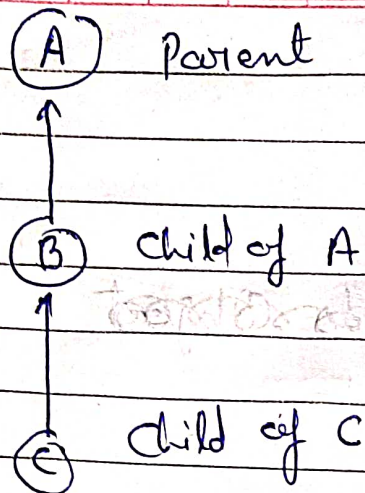 A Parent
B Child of A
C Child of C